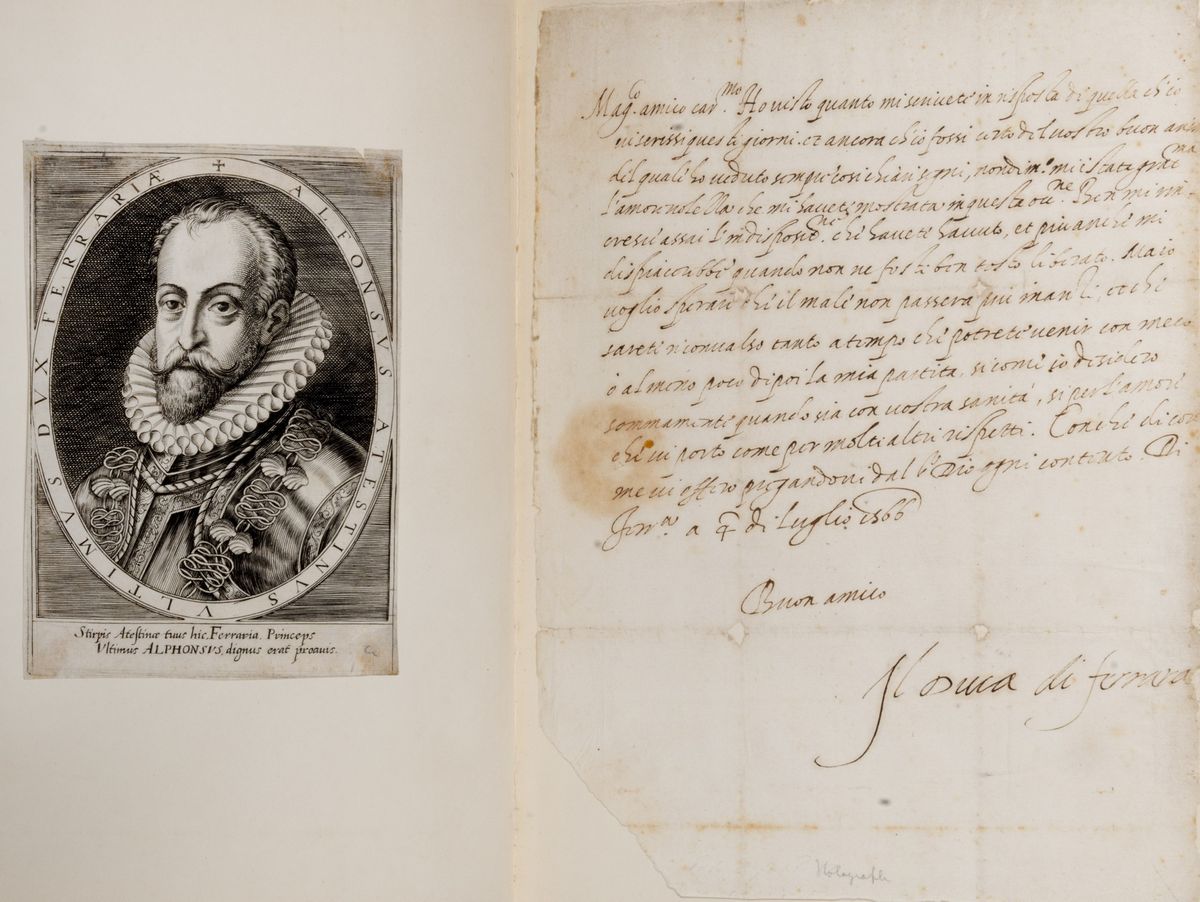 ✝ ALFONSVS ATESTINVS VLTIMVS DVX FERRARIÆ
Stirpis Atestinæ tuus hic, Ferraria, Princeps
Ultimus ALPHONSVS, dignus erat proavis.
Mag.co amico car.mo Ho visto quanto mi scrivete in risposta di quella ch'io
vi scrissi questi giorni. et ancora ch'io fossi certo del vostro buon
del quale ho veduto sempre cosi chiari segni, nondim.o mi è stata grat.ma
l'amorevolezza che mi havete mostrata in questa occ.ne Ben mi rin-
cresce assai l'indispositi.ne che havete havuto, et piu anche mi
dispiacerebbe quando non ne foste ben tosto liberato. Ma io
voglio sperare che il male non passerà piu inanti, et che
sarete riconvalso tanto a tempo che potrete venir con meco
o almeno poco dipoi la mia partita, si come io desidero
sommamente quando sia con vostra sanità, si per l'amore
che vi porto come per molti altri rispetti. Con che di cor
me vi offero pregandovi dal s.r Dio ogni contento. Di
Ferr.a a di Luglio 1566
Buon amico
Il Duca di ferrara
Holograph